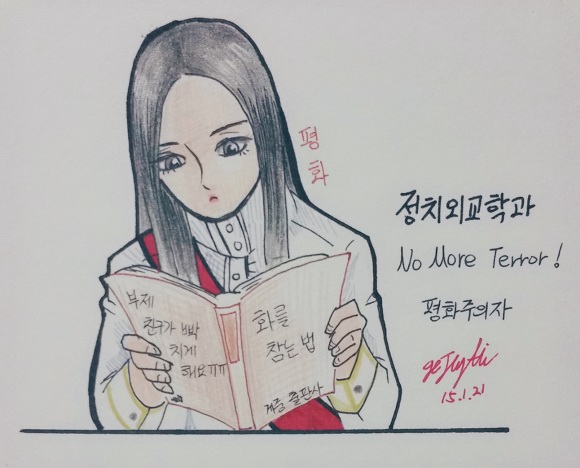 평
화
정치외교학과
No More Terror!
평화주의자
15.1.21
부제
친구가 빡
치게
해요ㅠㅠ
화를
참는 법
출판사